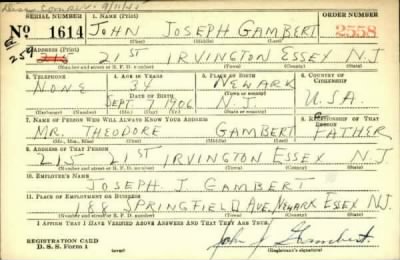 SERIAL NUMBER 1. NAME (Print) ORDER NUMBER
No 1614 JOHN JOSEPH GAMBERT 2558
(First) (Middle) (Last)
2. ADDRESS (Print)
259 215 21ST IRVINGTON ESSEX N.J
(Number and street or R. F. D. number) (Town) (County) (State)
3. TELEPHONE 4. AGE IN YEARS 5. PLACE OF BIRTH 6. COUNTRY OF CITIZENSHIP
NONE NEWARK
DATE OF BIRTH (Town or county)
SEPT 7 1906 N.J. U.S.A.
(Mo.) (Day) (Yr.) (State or country)
7. NAME OF PERSON WHO WILL ALWAYS KNOW YOUR ADDRESS 8. RELATIONSHIP OF THAT PERSON
MR. THEODORE GAMBERT FATHER
(Mr., Mrs., Miss) (First) (Middle) (Last)
9. ADDRESS OF THAT PERSON
215 21ST IRVINGTON ESSEX N.J
(Number and street or R. F. D. number) (Town) (County) (State)
10. EMPLOYER'S NAME
JOSEPH J. GAMBERT
11. PLACE OF EMPLOYMENT OR BUSINESS
188 SPRINGFIELD AVE. NEWARK ESSEX N.J.
(Number and street or R. F. D. number) (Town) (County) (State)
I AFFIRM THAT I HAVE VERIFIED ABOVE ANSWERS AND THAT THEY ARE TRUE.
REGISTRATION CARD
D. S. S. Form 1
John J Gambert